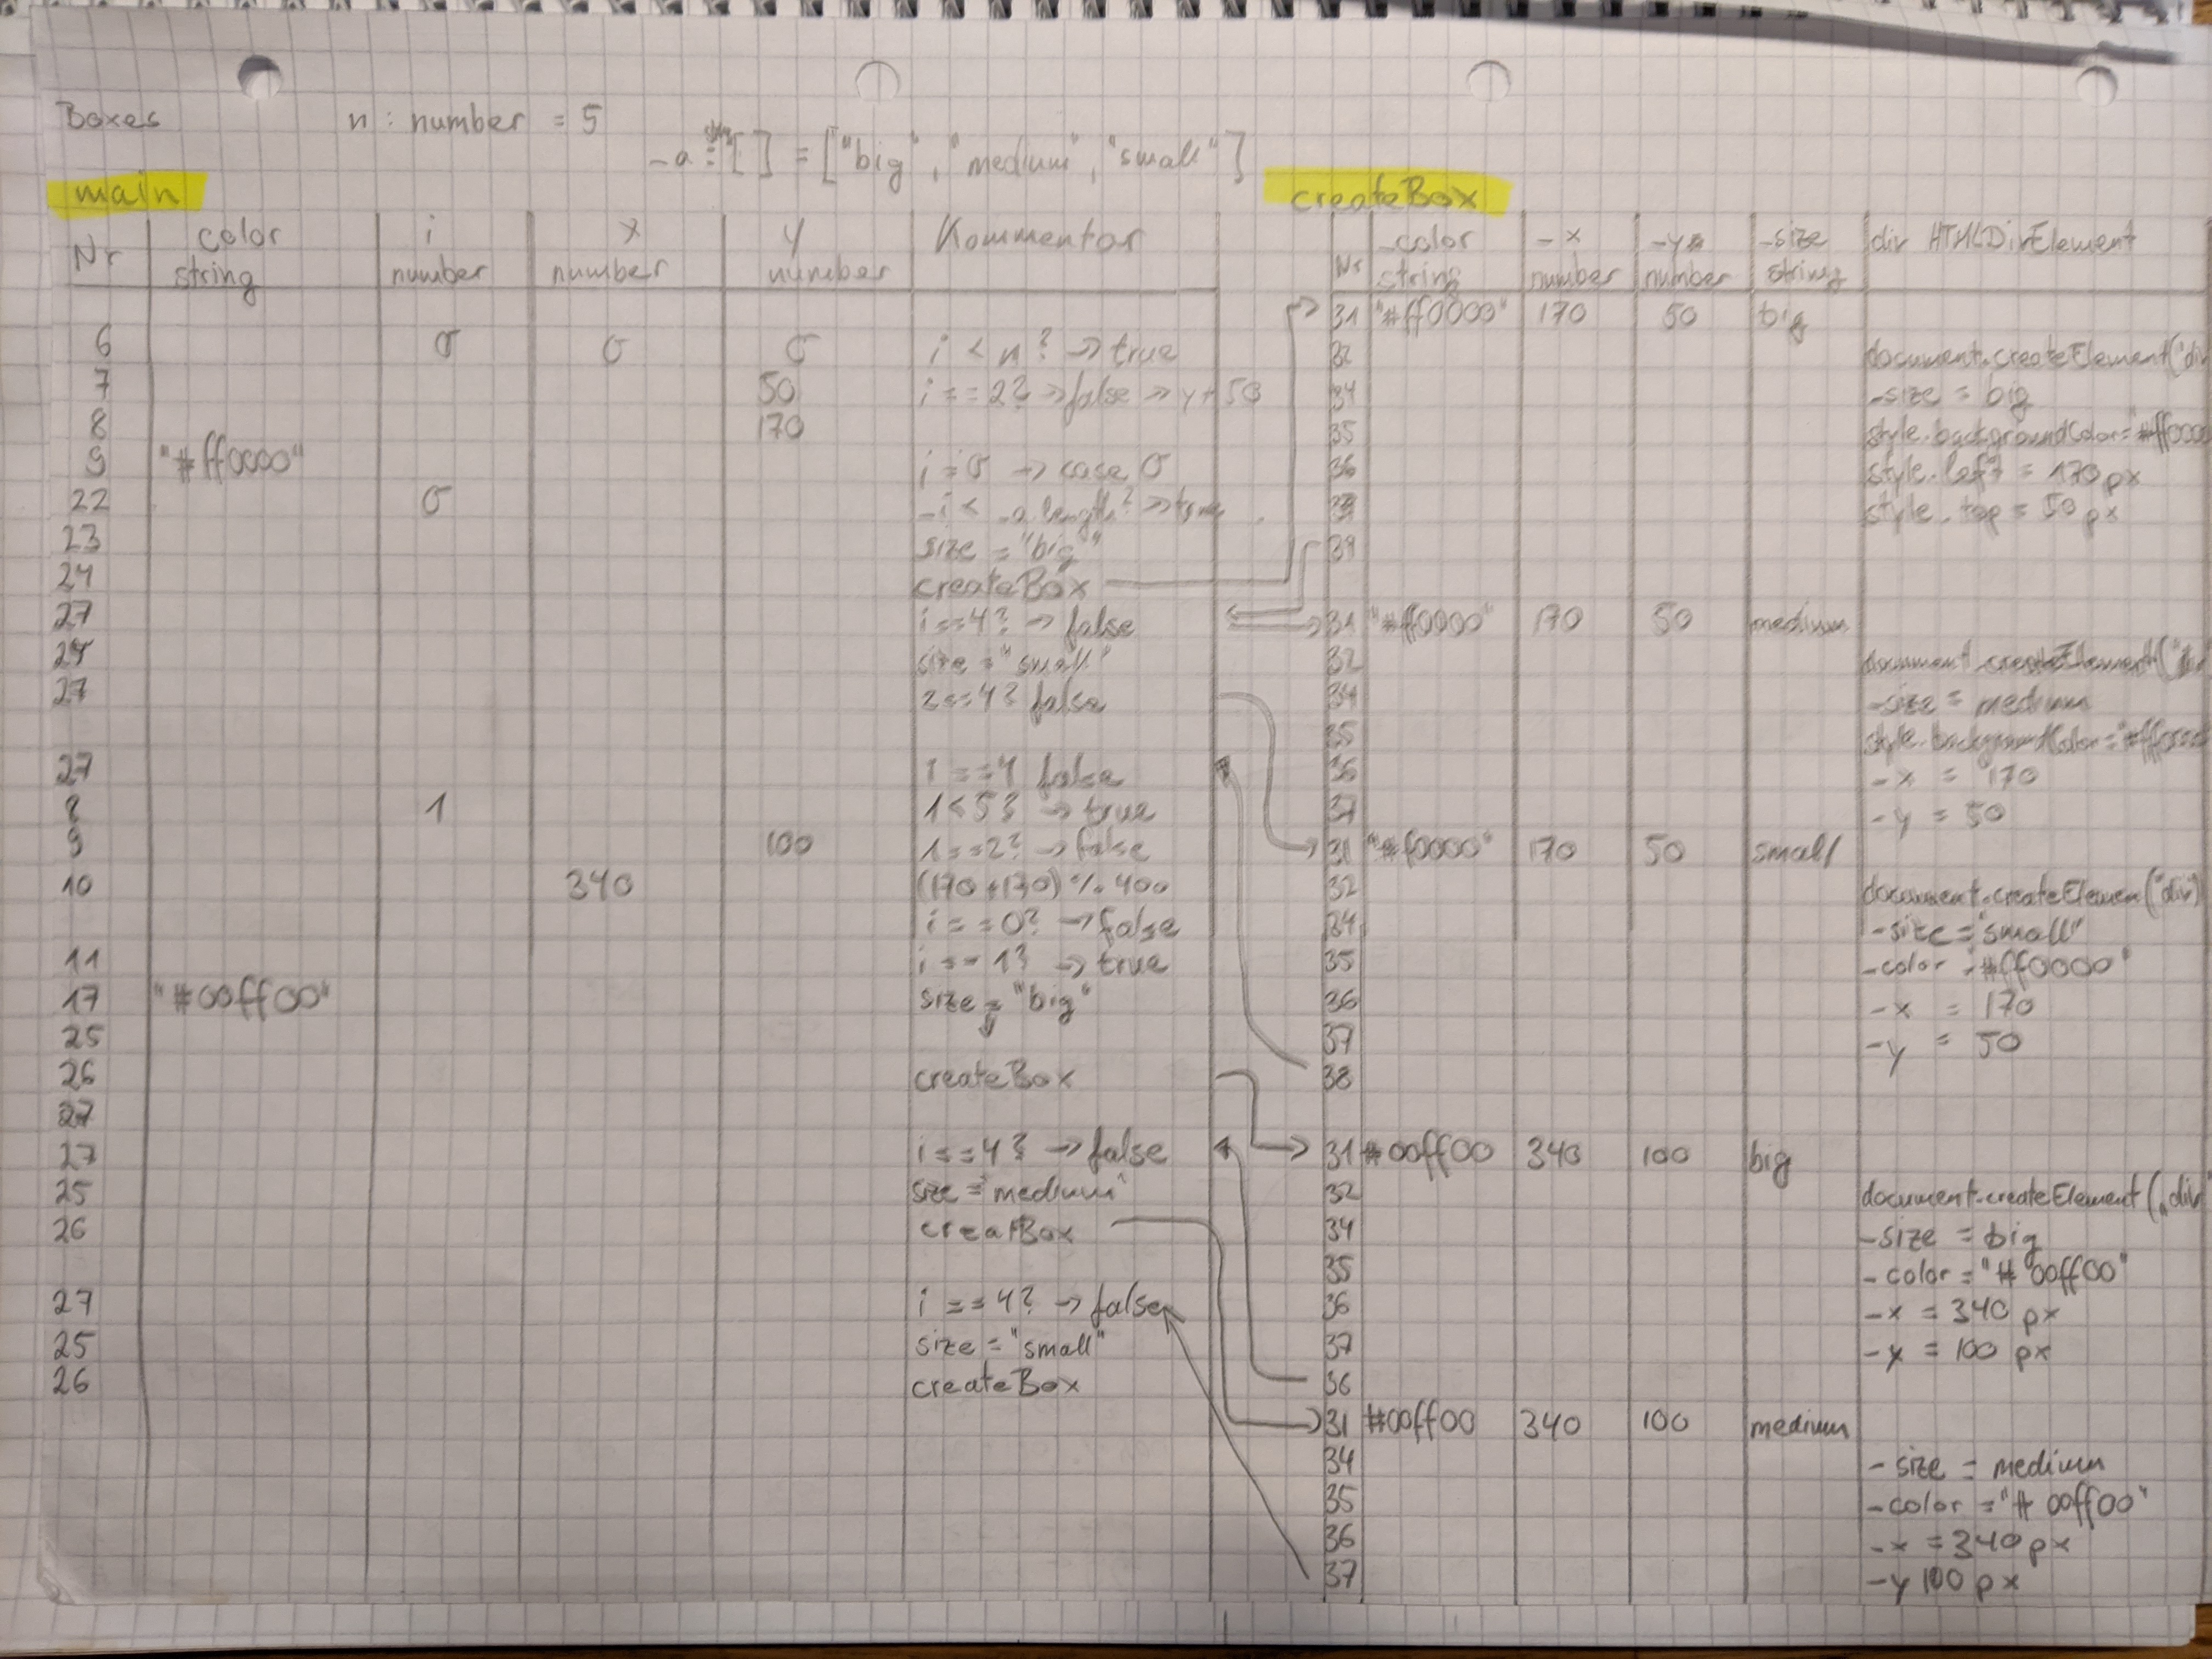 Boxes n : number = 5
_a : string [] = ["big", "medium", "small"]
main
Nr color string i number x number y number Kommentar
6 0 0 0 i < n? -> true
7 50 i == 2? -> false -> y + 50
8 170
9 "#ff0000" i = 0 -> case 0
22 0 _i < _a.length? -> true
23 size = "big"
24 createBox
27 i == 4? -> false
size = "small"
27 2 == 4? false
27 1 == 4 false
8 1 1 < 5? -> true
9 100 1 == 2? -> false
10 340 (170 + 170) % 400
i == 0? -> false
11 i == 1? -> true
17 "#00ff00" size = "big"
25
26 createBox
27
27 i == 4? -> false
25 size = "medium"
26 creatBox
27 i == 4? -> false
25 size = "small"
26 createBox
createBox
Nr _color string _x number _y number _size string div HTMLDivElement
31 "#ff0000" 170 50 big
32 document.createElement("div
34 -size = big
35 style.backgroundColor="#ff0000
36 style.left = 170 px
style.top = 50 px
39
31 "#ff0000" 170 50 medium
32 document.createElement("
34 -size = medium
35 style.backgroundColor="#ff0000
36 -x = 170
37 -y = 50
31 "#f0000" 170 50 small
32 document.createElemen("div)
34 -size = "small"
35 -color = "#ff0000"
36 -x = 170
37 -y = 50
38
31 #00ff00 340 100 big
32 document.createElement("div"
34 -size = big
35 -color = "#00ff00"
36 -x = 340 px
37 -y = 100 px
36
31 #00ff00 340 100 medium
34 -size = medium
35 -color = "#00ff00"
36 -x = 340 px
37 -y 100 px